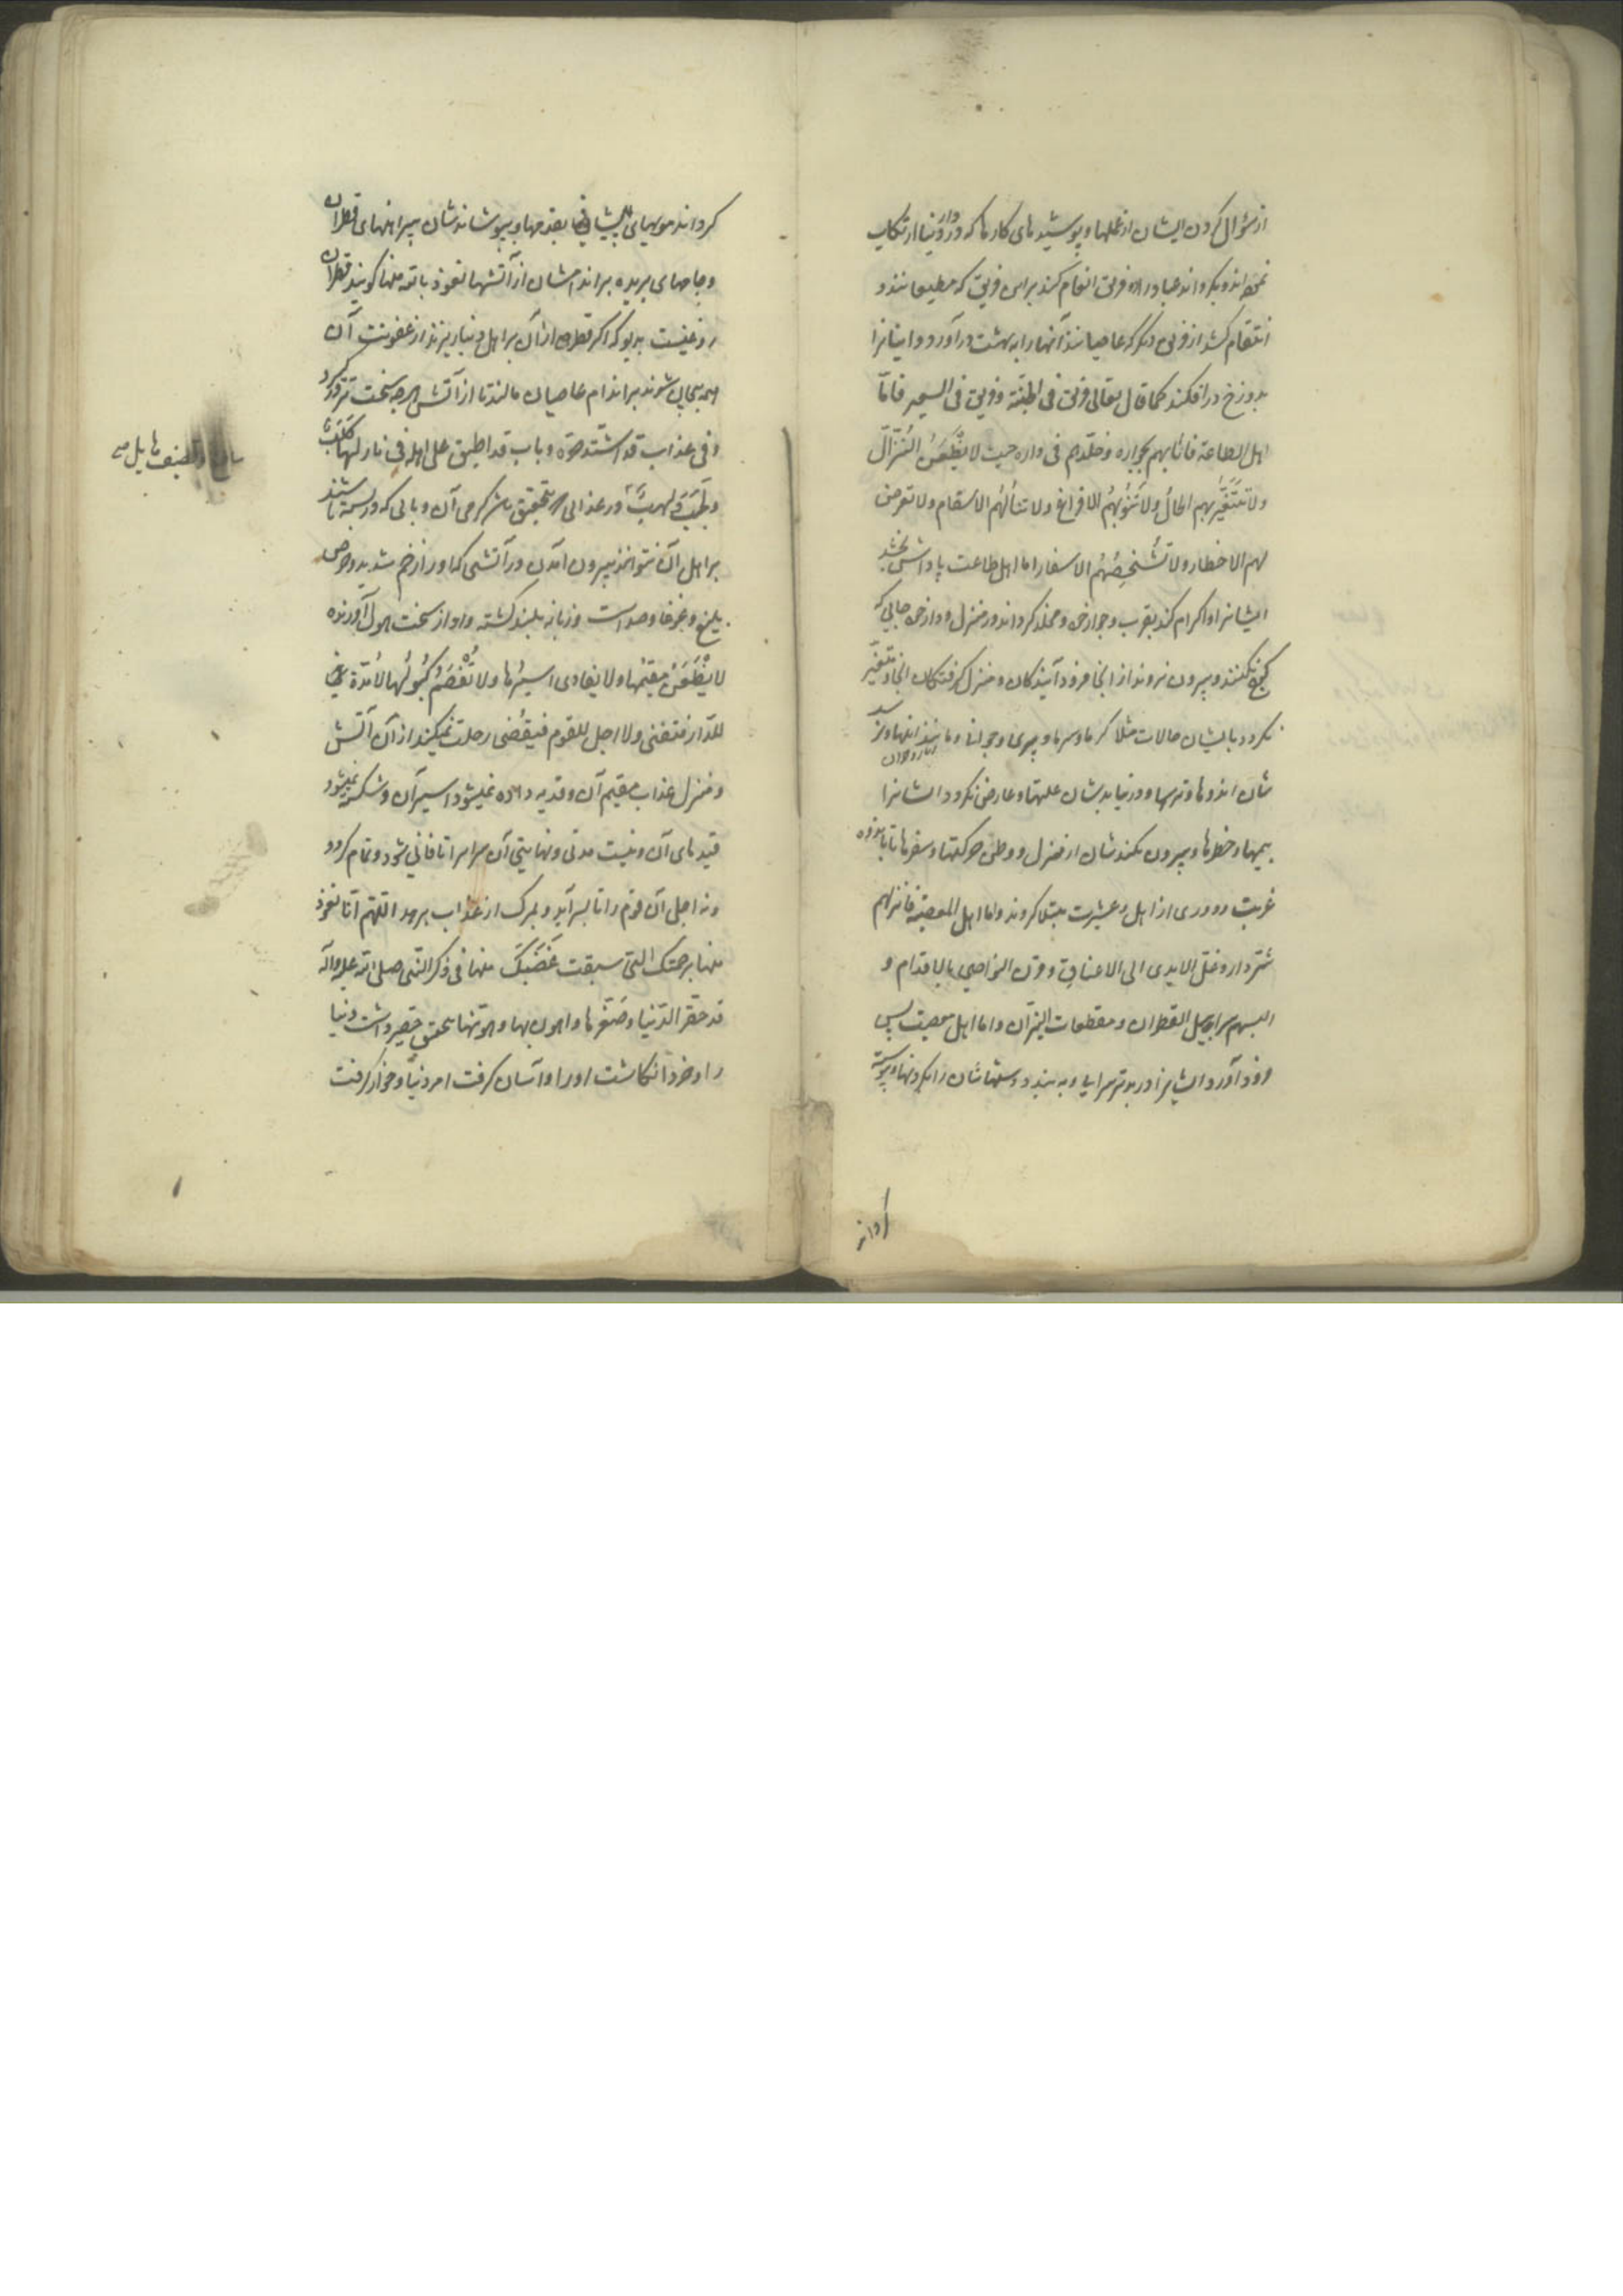 از سؤال کردن ایشان از عملها و پوشیدهای کارها که در دار دنیا ارتکاب
نموده‌اند و بگرداند عباد را دو فریق انعام کند بر این فریق که مطیعانند و
انتقام کشد از فریق دیگر که عاصیانند آنها را به بهشت در آورد و اینانرا
بدوزخ در افکند کما قال تعالی فریق فی الجنّة و فریق فی السعیر فامّا
اهل الطاعة فاثابهم بجواره و خلّدهم فی داره حیث لا یَظْعَنُ النُزّال
ولا تتغیّر بهم الحالُ ولا تَنُوبُهُمُ الافزاع ولا تنالُهُم الاسقام ولا تعرض
لهم الاخطار ولا تُشْخِصُهُم الاسفار اما اهل طاعت پاداش بخشد
ایشانرا و اکرام کند بقرب و جوار خود و مخلد گرداند در منزل و دار خود جایی که
کوچ نکنند و بیرون نروند از آنجا فرود آیندگان و منزل گرفتگان آنجا و متغیّر
نگردد بایشان حالات مثلا گرما و سرما و پیری و جوانی و مانند اینها و نرسد
شان اندوها و ترسها و در نیابدشان علتها و عارض نگردد ایشانرا
بیمها و خطرها و بیرون نکندشان از منزل و وطن حرکتها و سفرها تا باندوه
غربت و دوری از اهل و عشیرت مبتلا گردند و اما اهل المعصیة فانزلهم
شرّ دار و غلّ الایدی الی الاعناق و قرن النواصی بالاقدام و
البسهم سرابیل القطران و مقطعات النیران و اما اهل معصیت پس
فرود آورد ایشانرا در بدترین سرایی و به بندد دستهاشان را بگردنها و پیوسته
گرداند
گرداند مویهای پیشانی بقدمها و بپوشاندشان پیراهنهای قطران
و جامهای بریده بر اندامشان از آتشها نعوذ بالله منها گویند قطران
روغنیست بدبو که اگر قطره از آن بر اهل دنیا ریزند از عفونت آن
همه بیجان شوند بر اندام عاصیان مالند تا از آتش هر چه سخت تر در گیرد
و فی عذاب قد اشتّد حرّه و باب قد اطبق علی اهله فی نار لها کَلَبٌ
و لَجَبٌ و لهبٌ در عذابی که بتحقیق سخت شد گرمی آن و بابی که در بسته باشند
بر اهل آن نتوانند بیرون آمدن در آتشی که او را زخم شدید و حرص
بلیغ و غوغا و صداست و زبانه بلند گشته و آواز سخت هول آورنده
لا یَظْعَنُ مقیمُها ولا یفادی اسیرُها ولا تُفْصَمُ کُبُولُها لا مُدّة
للدّار فتفنی ولا اجل للقوم فیقضی رحلت نمیکند از آن آتش
و منزل عذاب مقیم آن و فدیه داده نمیشود اسیر آن و شکسته نمیشود
قیدهای آن و نیست مدتی و نهایتی آن سرا را تا فانی شود و تمام گردد
و نه اجلی آن قوم را تا بسر آید و بمرگ از عذاب برهد اللّهم انّا نعوذ
منها برحمتک التی سبقت غَضَبَکَ منها فی ذکر النبی صلی الله علیه و آله
قد حقّر الدّنیا و صَغّرها و اهون بها و هوّنها بتحقیق حقیر داشت دنیا
را و خرد انگاشت او را و آسان گرفت امر دنیا و خوار گرفت